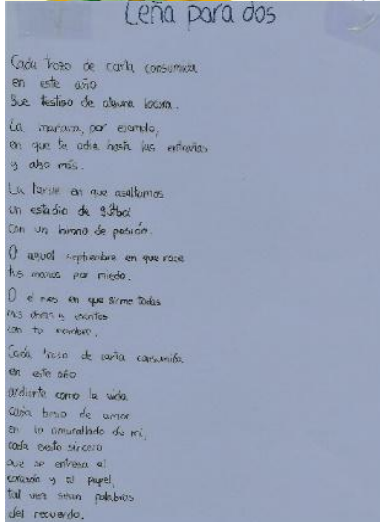 Leña para dos
Cada trozo de carta consumida
en este año
fue testigo de alguna locura.
La mañana, por ejemplo,
en que te odié hasta las entrañas
y algo más.
La tarde en que asaltamos
un estadio de fútbol
con un himno de pasión.
O aquel septiembre en que rocé
tus manos por miedo.
O el mes en que firmé todas
mis obras y escritos
con tu nombre.
Cada trozo de carta consumida
en este año
ardiente como la vida
cada beso de amor
en lo amurallado de mi,
cada verso sincero
que se entrega al
corazón y al papel,
tal vez sean palabras
del recuerdo.